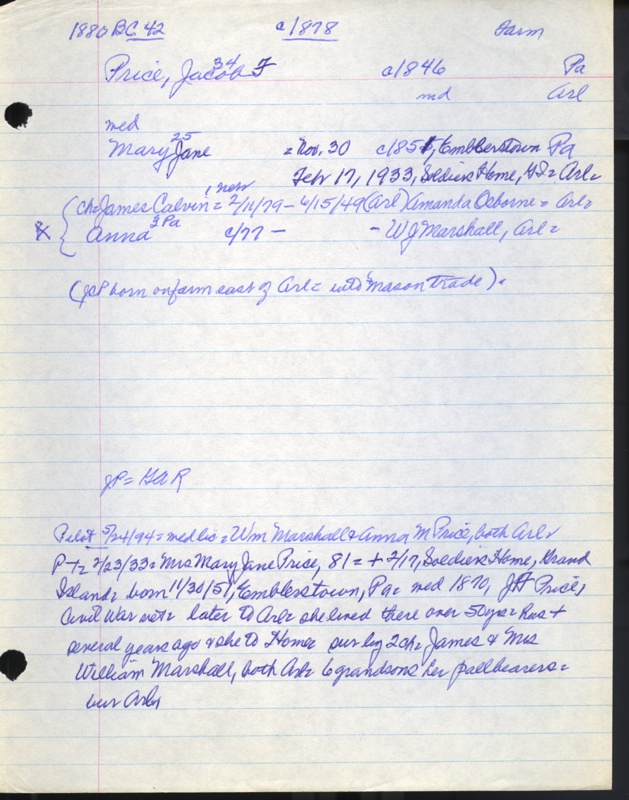 1880 BC 42 c/1878 Farm
Price, Jacob F 34 c/1846 Pa
md Arl
med
Mary Jane 25 = Nov. 30 c/851, Emblerstown Pa
Feb 17, 1933, Soldiers Home, GI = Arl =
ch = James Calvin = 1 new 2/11/79 - 4/15/49 (Arl) Amanda Osborne = Arl =
X Anna 3 Pa c/77 - - W J Marshall, Arl =
(JCP born on farm east of Arl = into mason trade).
JP = GAR
Pilot 5/24/94 = med lic = Wm Marshall & Anna M Price, both Arl =
P - 2/23/33 = Mrs Mary Jane Price, 81 = + 2/17, Soldiers Home, Grand
Island = born 11/30/51, Emblerstown, Pa = med 1870, J F Price,
Civil War vet = later to Arl = she lived there over 50 yrs = Hus +
several years ago & she to Home = sur by 2 ch = James & Mrs
William Marshall, both Arl = 6 grandsons her pallbearers =
bur Arl